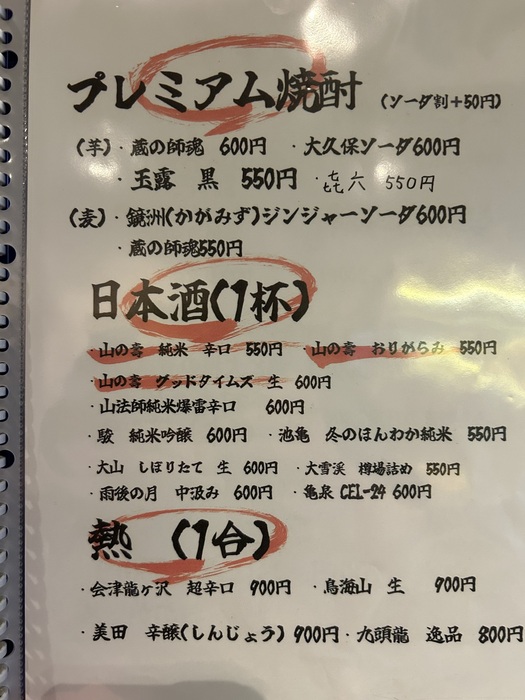 プレミアム焼酎 (ソーダ割+50円)
(芋)・蔵の師魂 600円 ・大久保ソーダ600円
・玉露 黒 550円 ・㐂六 550円
(麦)・鏡洲(かがみず)ジンジャーソーダ600円
・蔵の師魂550円
日本酒(1杯)
・山の壽 純米 辛口 550円 ・山の壽 おりがらみ 550円
・山の壽 グッドタイムズ 生 600円
・山法師純米爆雷辛口 600円
・駿 純米吟醸 600円 ・池亀 冬のほんわか純米 550円
・大山 しぼりたて 生 600円 ・大雪渓 樽場詰め 550円
・雨後の月 中汲み 600円 ・亀泉 CEL-24 600円
熱 (1合)
・会津龍ヶ沢 超辛口 900円 ・鳥海山 生 900円
・美田 辛醸(しんじょう) 900円・九頭龍 逸品 800円